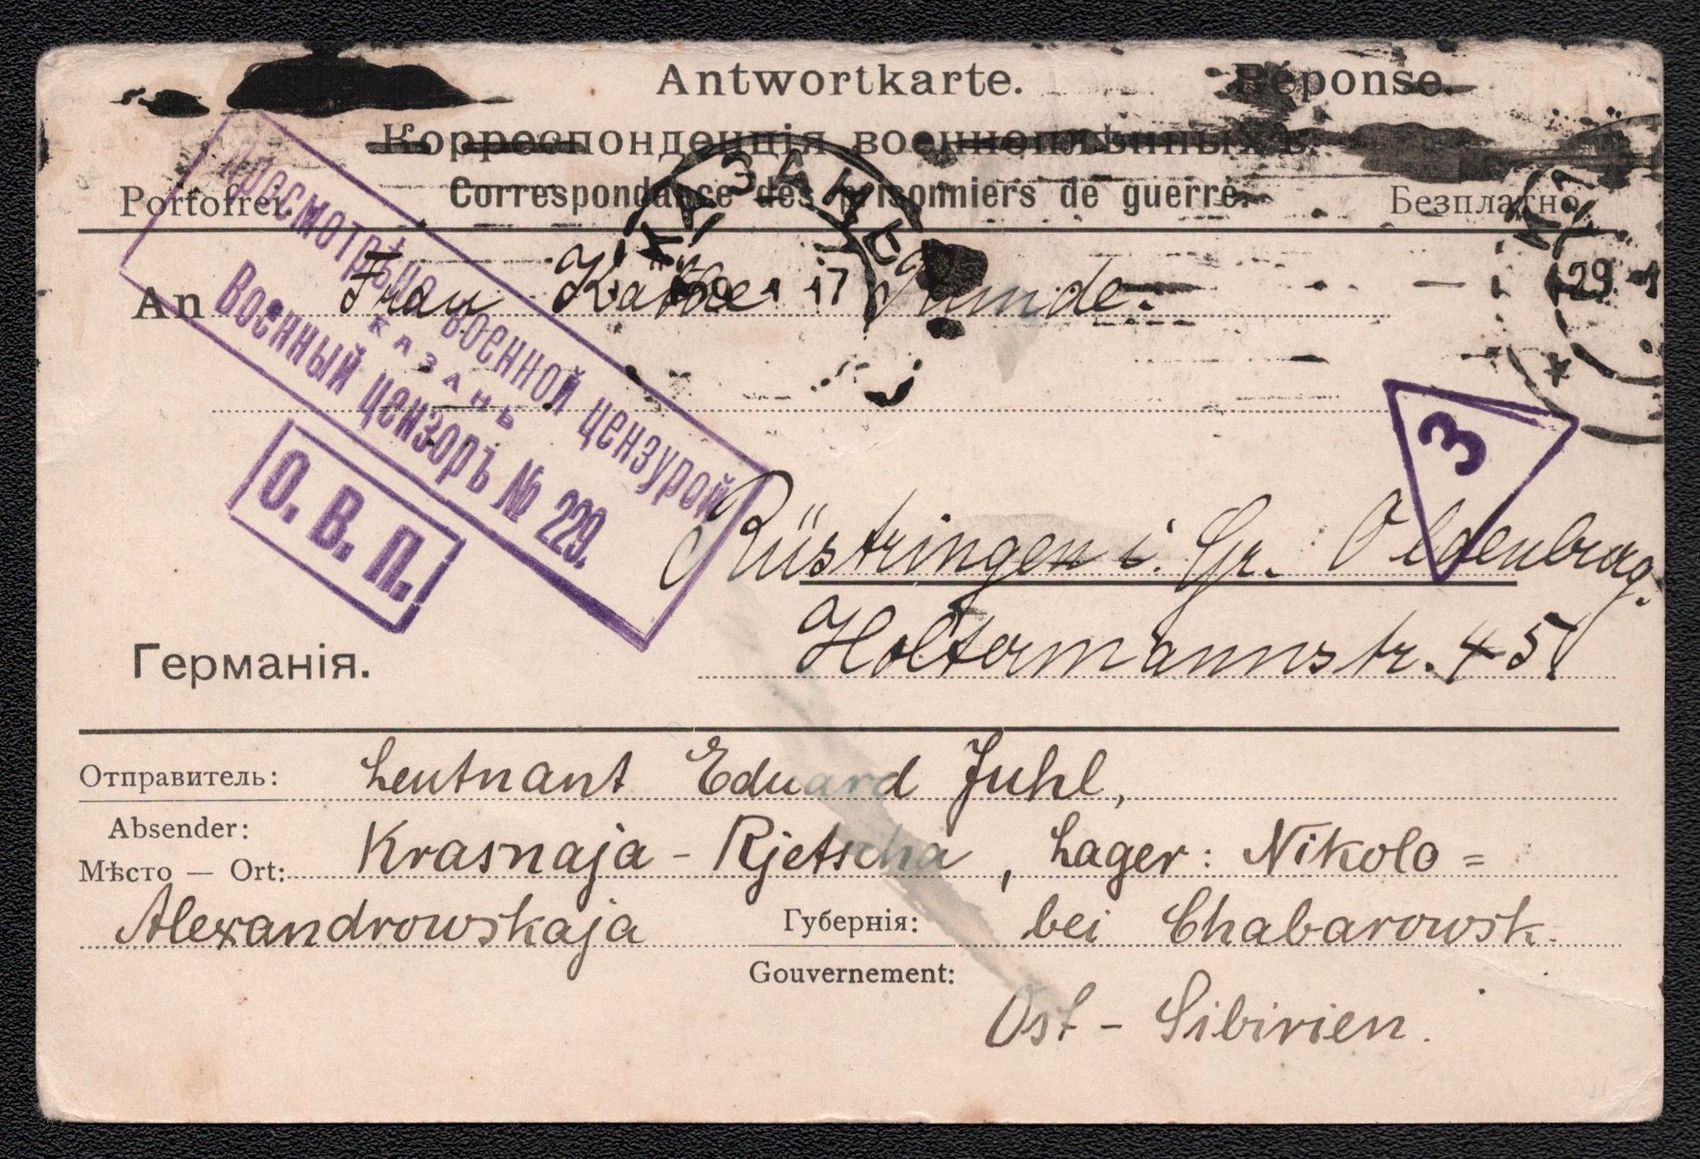 Antwortkarte. Réponse.
Корреспонденція военноплѣнныхъ.
Correspondance des prisonniers de guerre.
Portofrei. Безплатно.
КАЗАНЬ
17
29
An Frau Käthe
Просмотрѣно военной цензурой
КАЗАНЬ
Военный цензоръ № 229.
О. В. П.
3
Rüstringen i. Gr. Oldenburg.
Holtermannstr. 45
Германія.
Отправитель: Leutnant Eduard Juhl,
Absender:
Мѣсто — Ort: Krasnaja - Rjetscha, Lager: Nikolo =
Alexandrowskaja Губернія: bei Chabarowsk.
Gouvernement:
Ost - Sibirien.